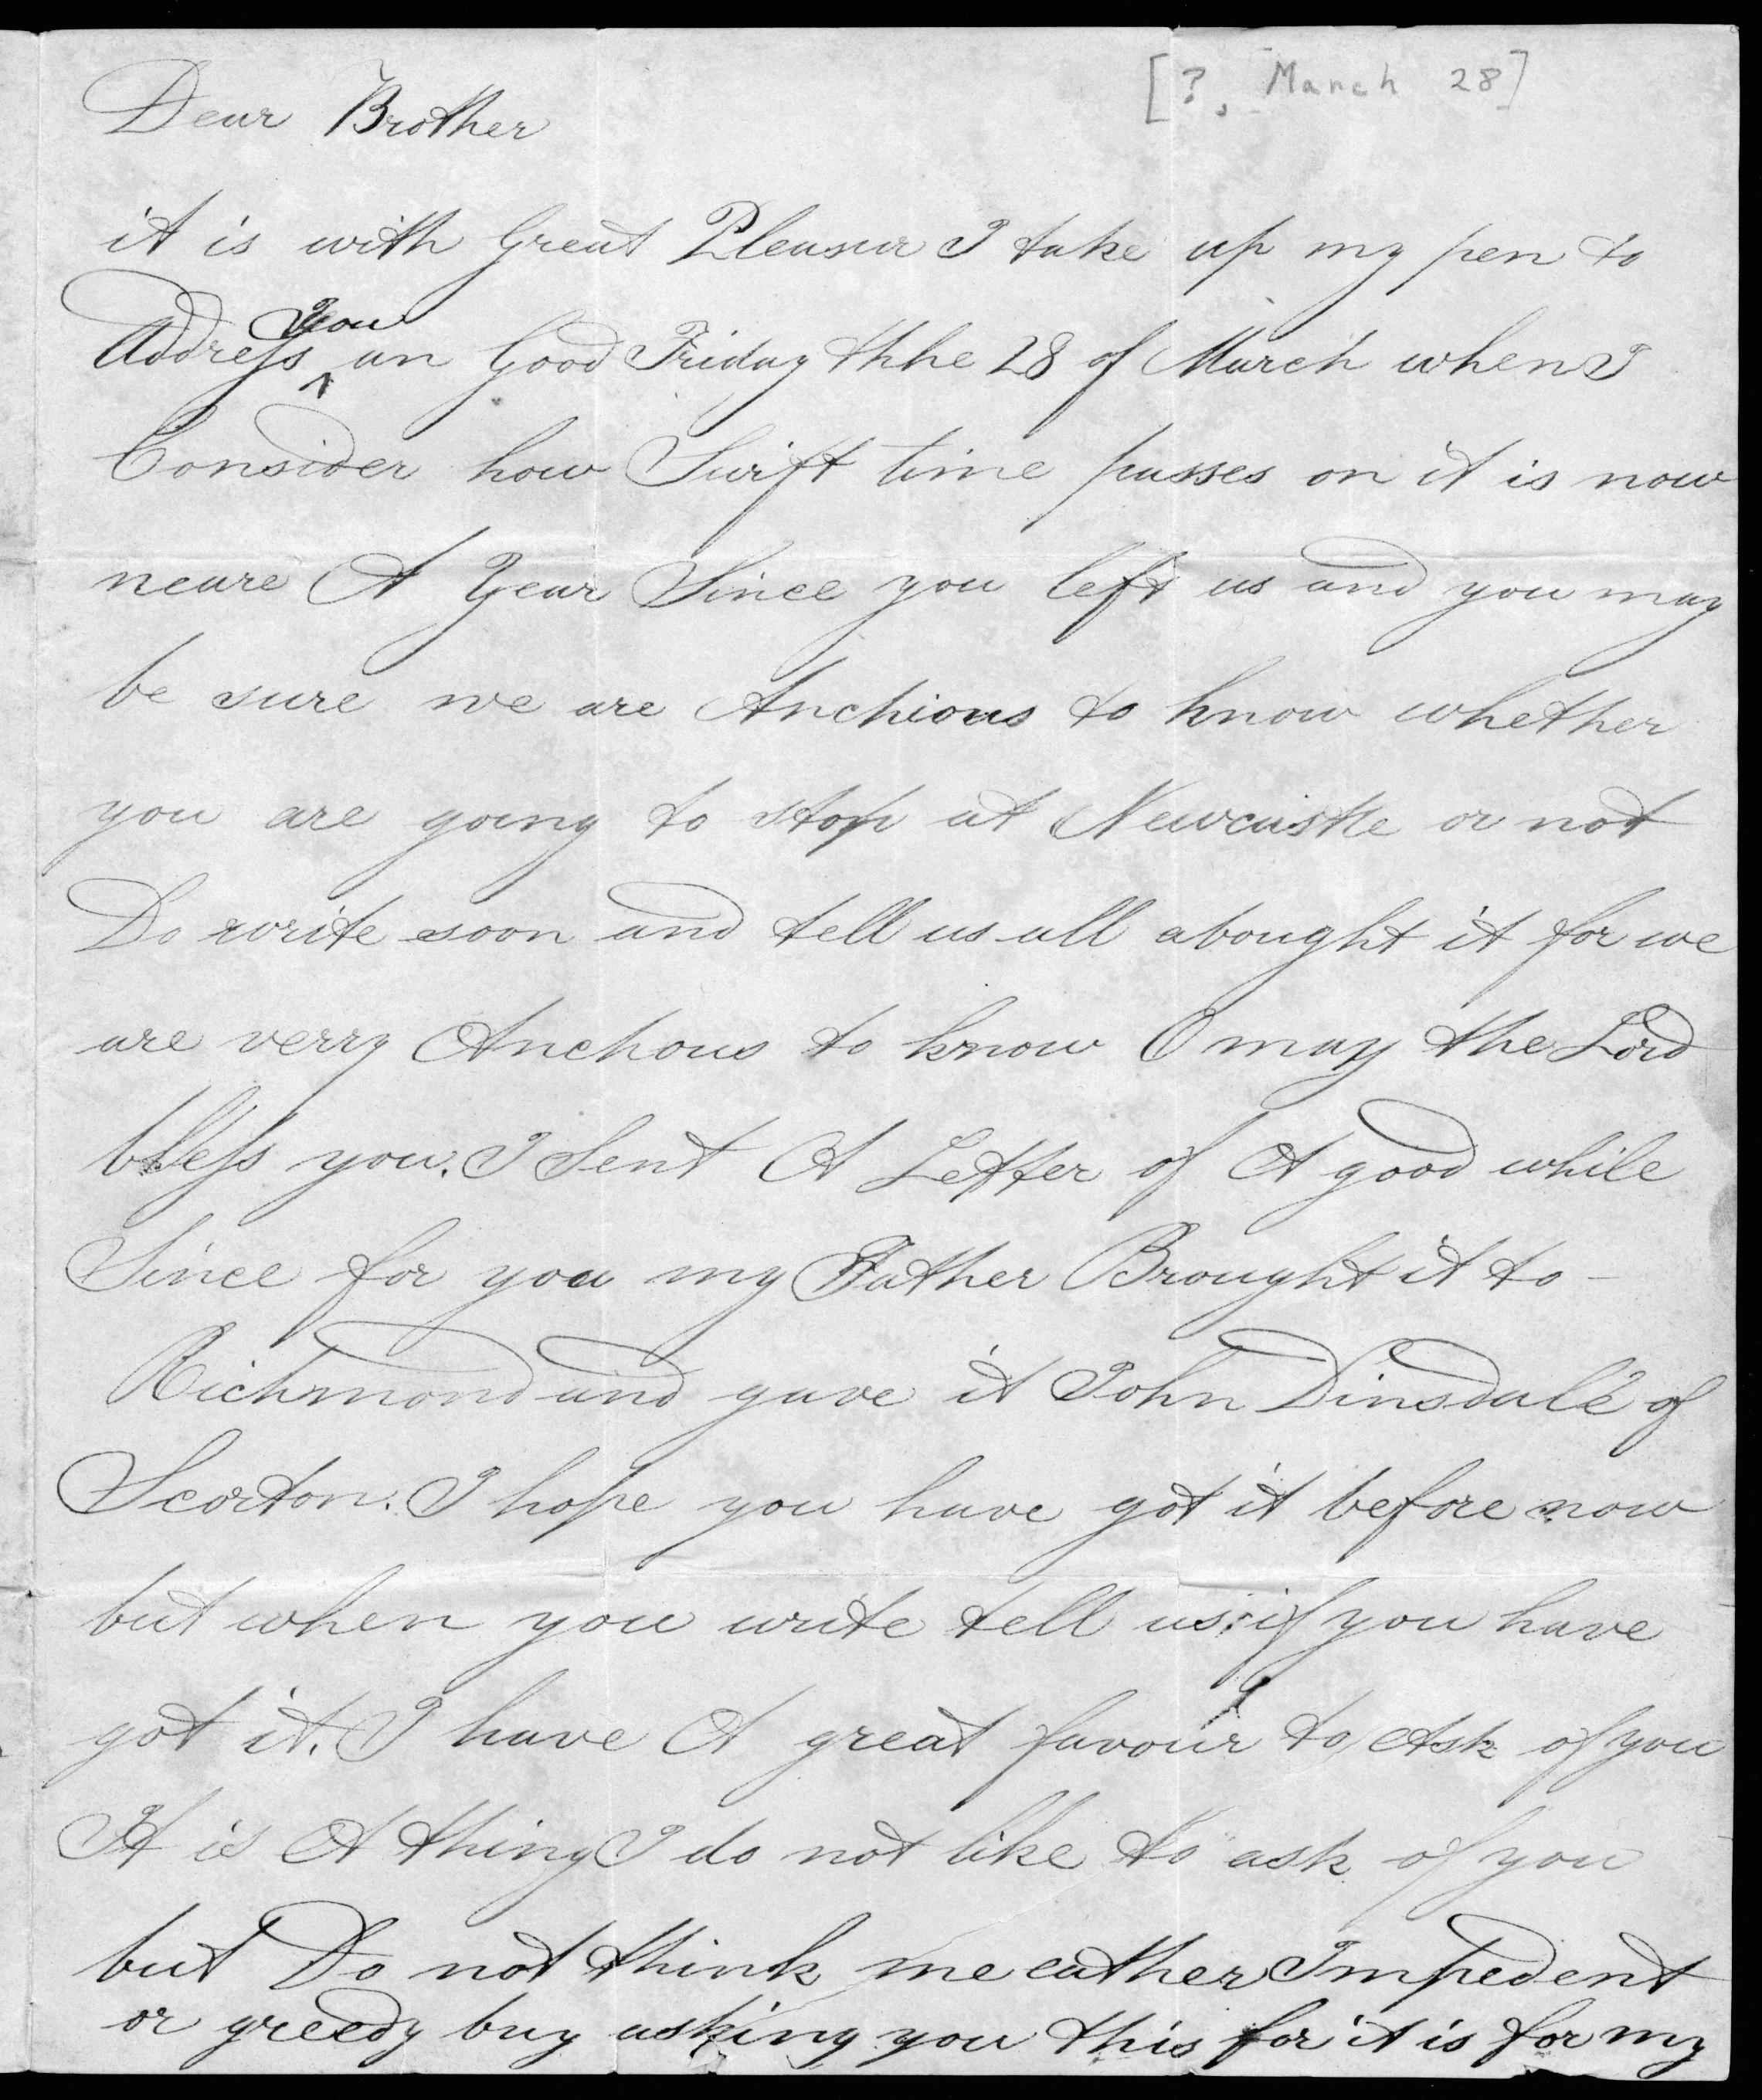 [?, March 28]
Dear Brother
it is with Great Pleasur I take up my pen to
Address you an Good Friday thhe 28 of March when I
Consider how Swift time passes on it is now
neare A Year Since you left us and you may
be sure we are Anchious to know whether
you are going to stop at Newcastle or not
Do write soon and tell us all abought it for we
are verry Anchous to know O may the Lord
bless you. I Sent A Letter of A good while
Since for you my Father Brought it to -
Richmond and gave it John Dinsdale of
Scorton. I hope you have got it before now
but when you write tell us if you have
got it. I have A great favour to Ask of you
It is A thing I do not like to ask of you
but Do not think me eather Impedent
or greedy buy asking you this for it is for my